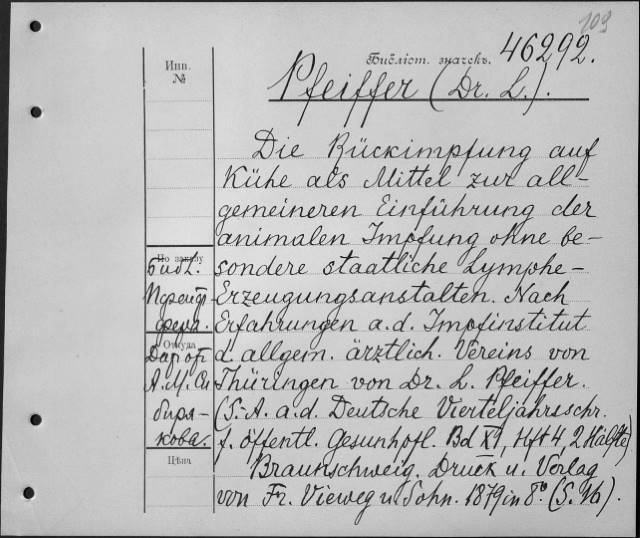 109
Инв.
№
Библіот. значекъ. 46292.
Pfeiffer (Dr. L.).
Die Rückimpfung auf
Kühe als Mittel zur all-
gemeineren Einführung der
animalen Impfung ohne be-
sondere staatliche Lymphe-
Erzeugungsanstalten. Nach
Erfahrungen a. d. Impfinstitut
d. allgem. ärztlich. Vereins von
Thüringen von Dr. L. Pfeiffer.
(S.-A. a. d. Deutsche Vierteljahrsschr.
f. öffentl. Gesunhpfl. Bd XI, Hft 4, 2 Hälfte)
Braunschweig, Druck u. Verlag
von Fr. Vieweg u. Sohn. 1879 in 8º (S.
По заказу
Библ.
Пфейф
фера.
Откуда
Дар от
А. М. Си
биря-
кова.
Цѣна